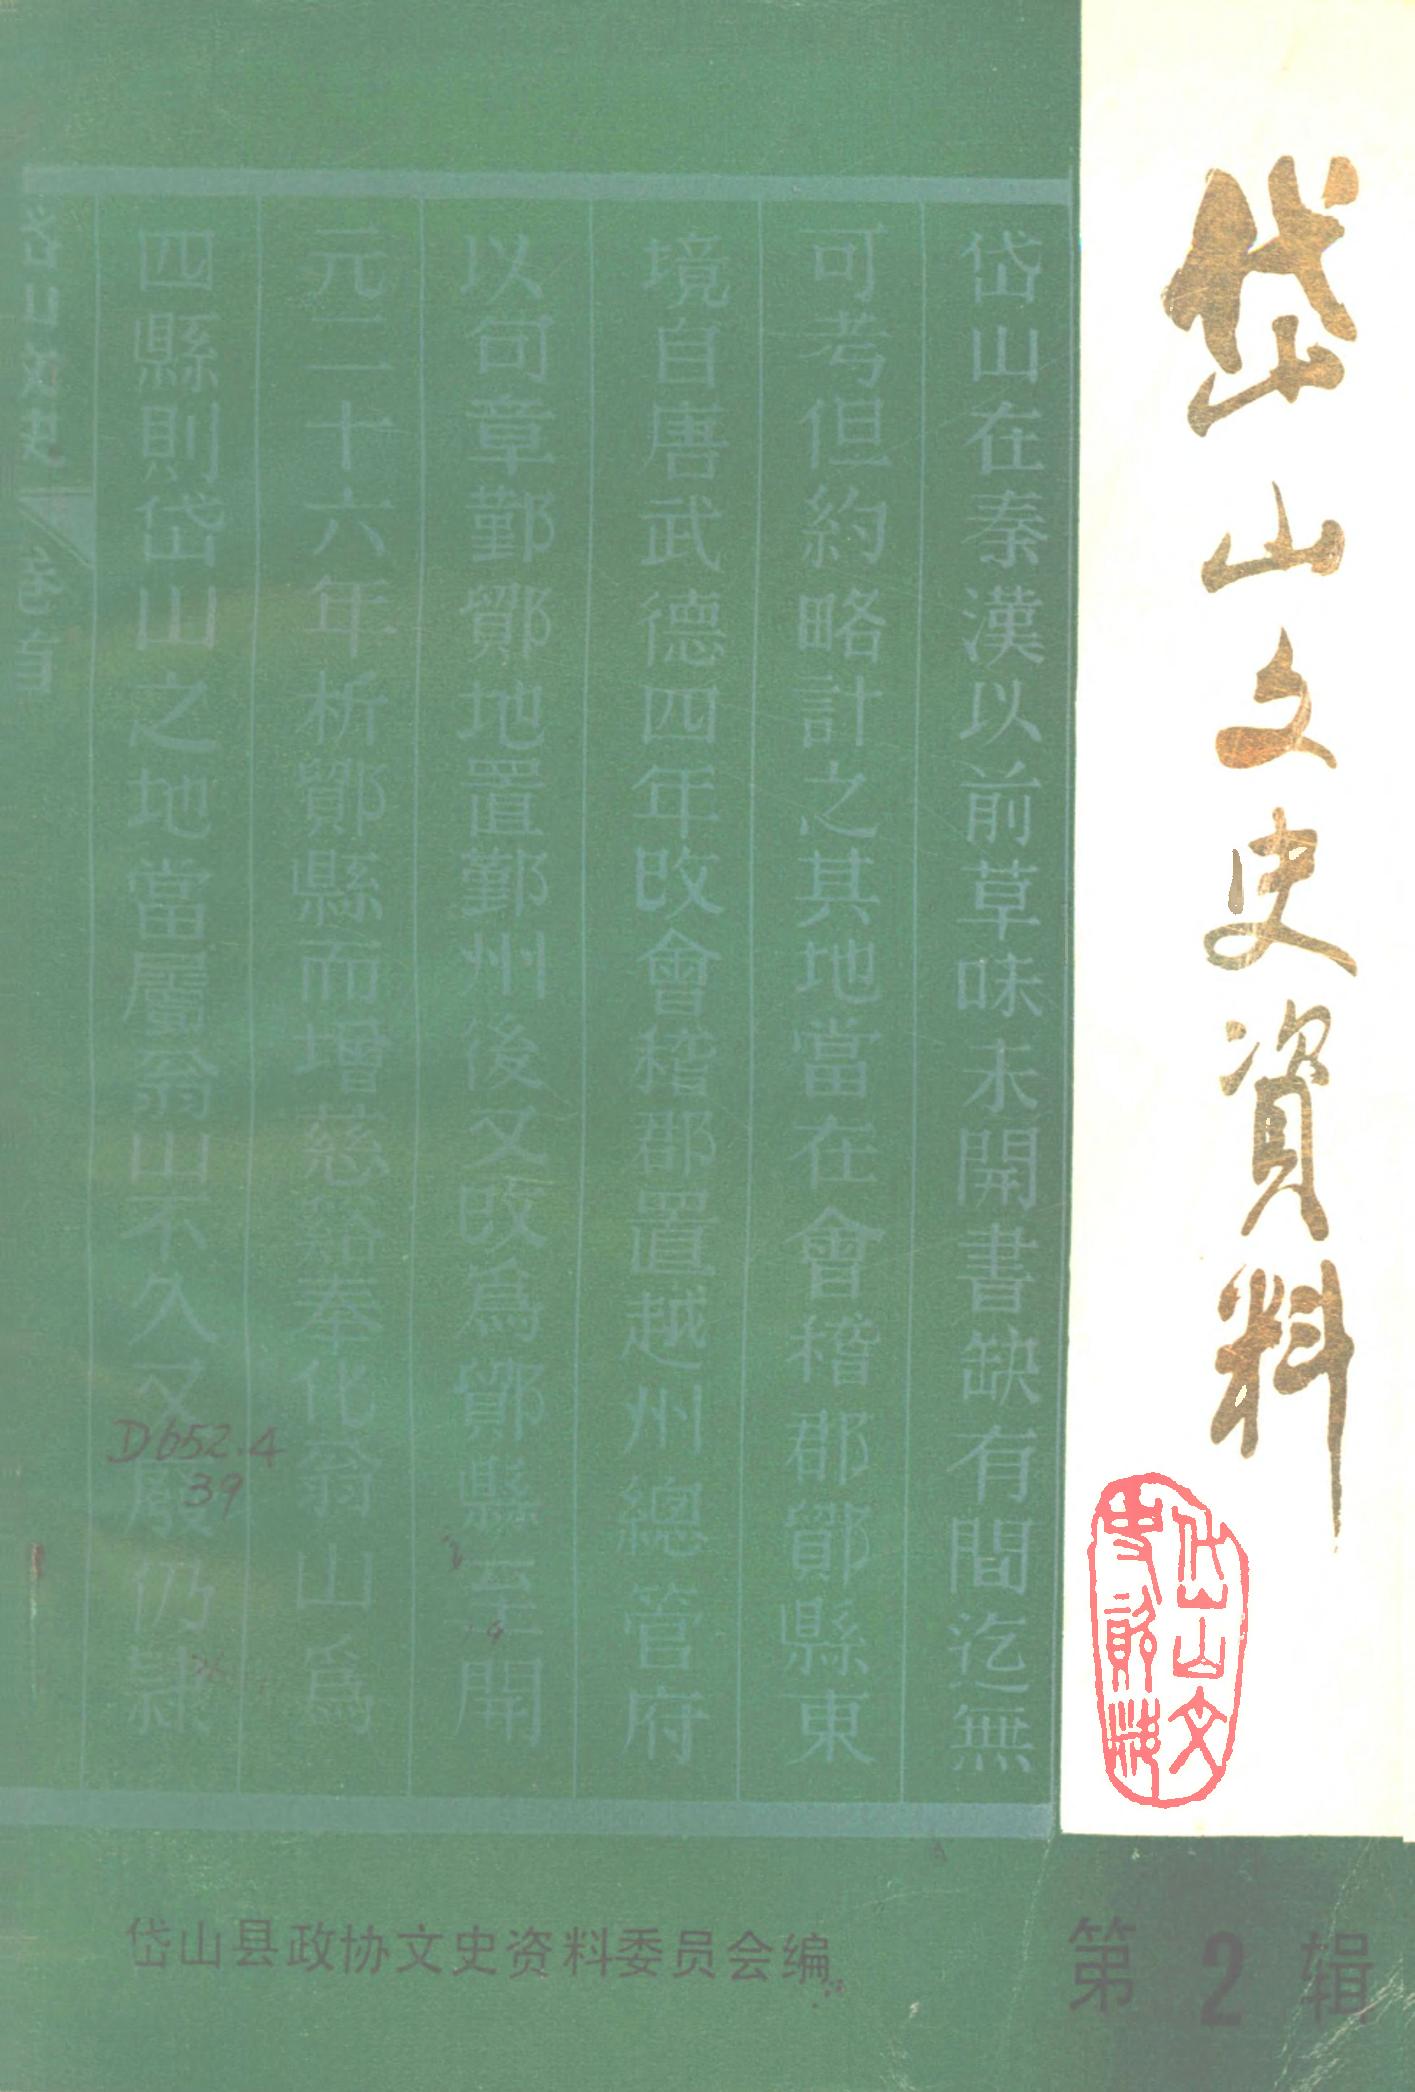 岱山文史資料
岱山文
岱山在秦漢以前草昧未開書缺有間迄無
可考但約略計之其地當在會稽郡鄮縣東
境自唐武德四年改會稽郡置越州總管府
以句章鄞鄮地置鄞州後又改為鄮縣至開
元二十六年析鄮縣而增慈谿奉化翁山為
四縣則岱山之地當屬翁山不久又廢仍隸
D652.4
39
岱山县政协文史资料委员会编
第2辑